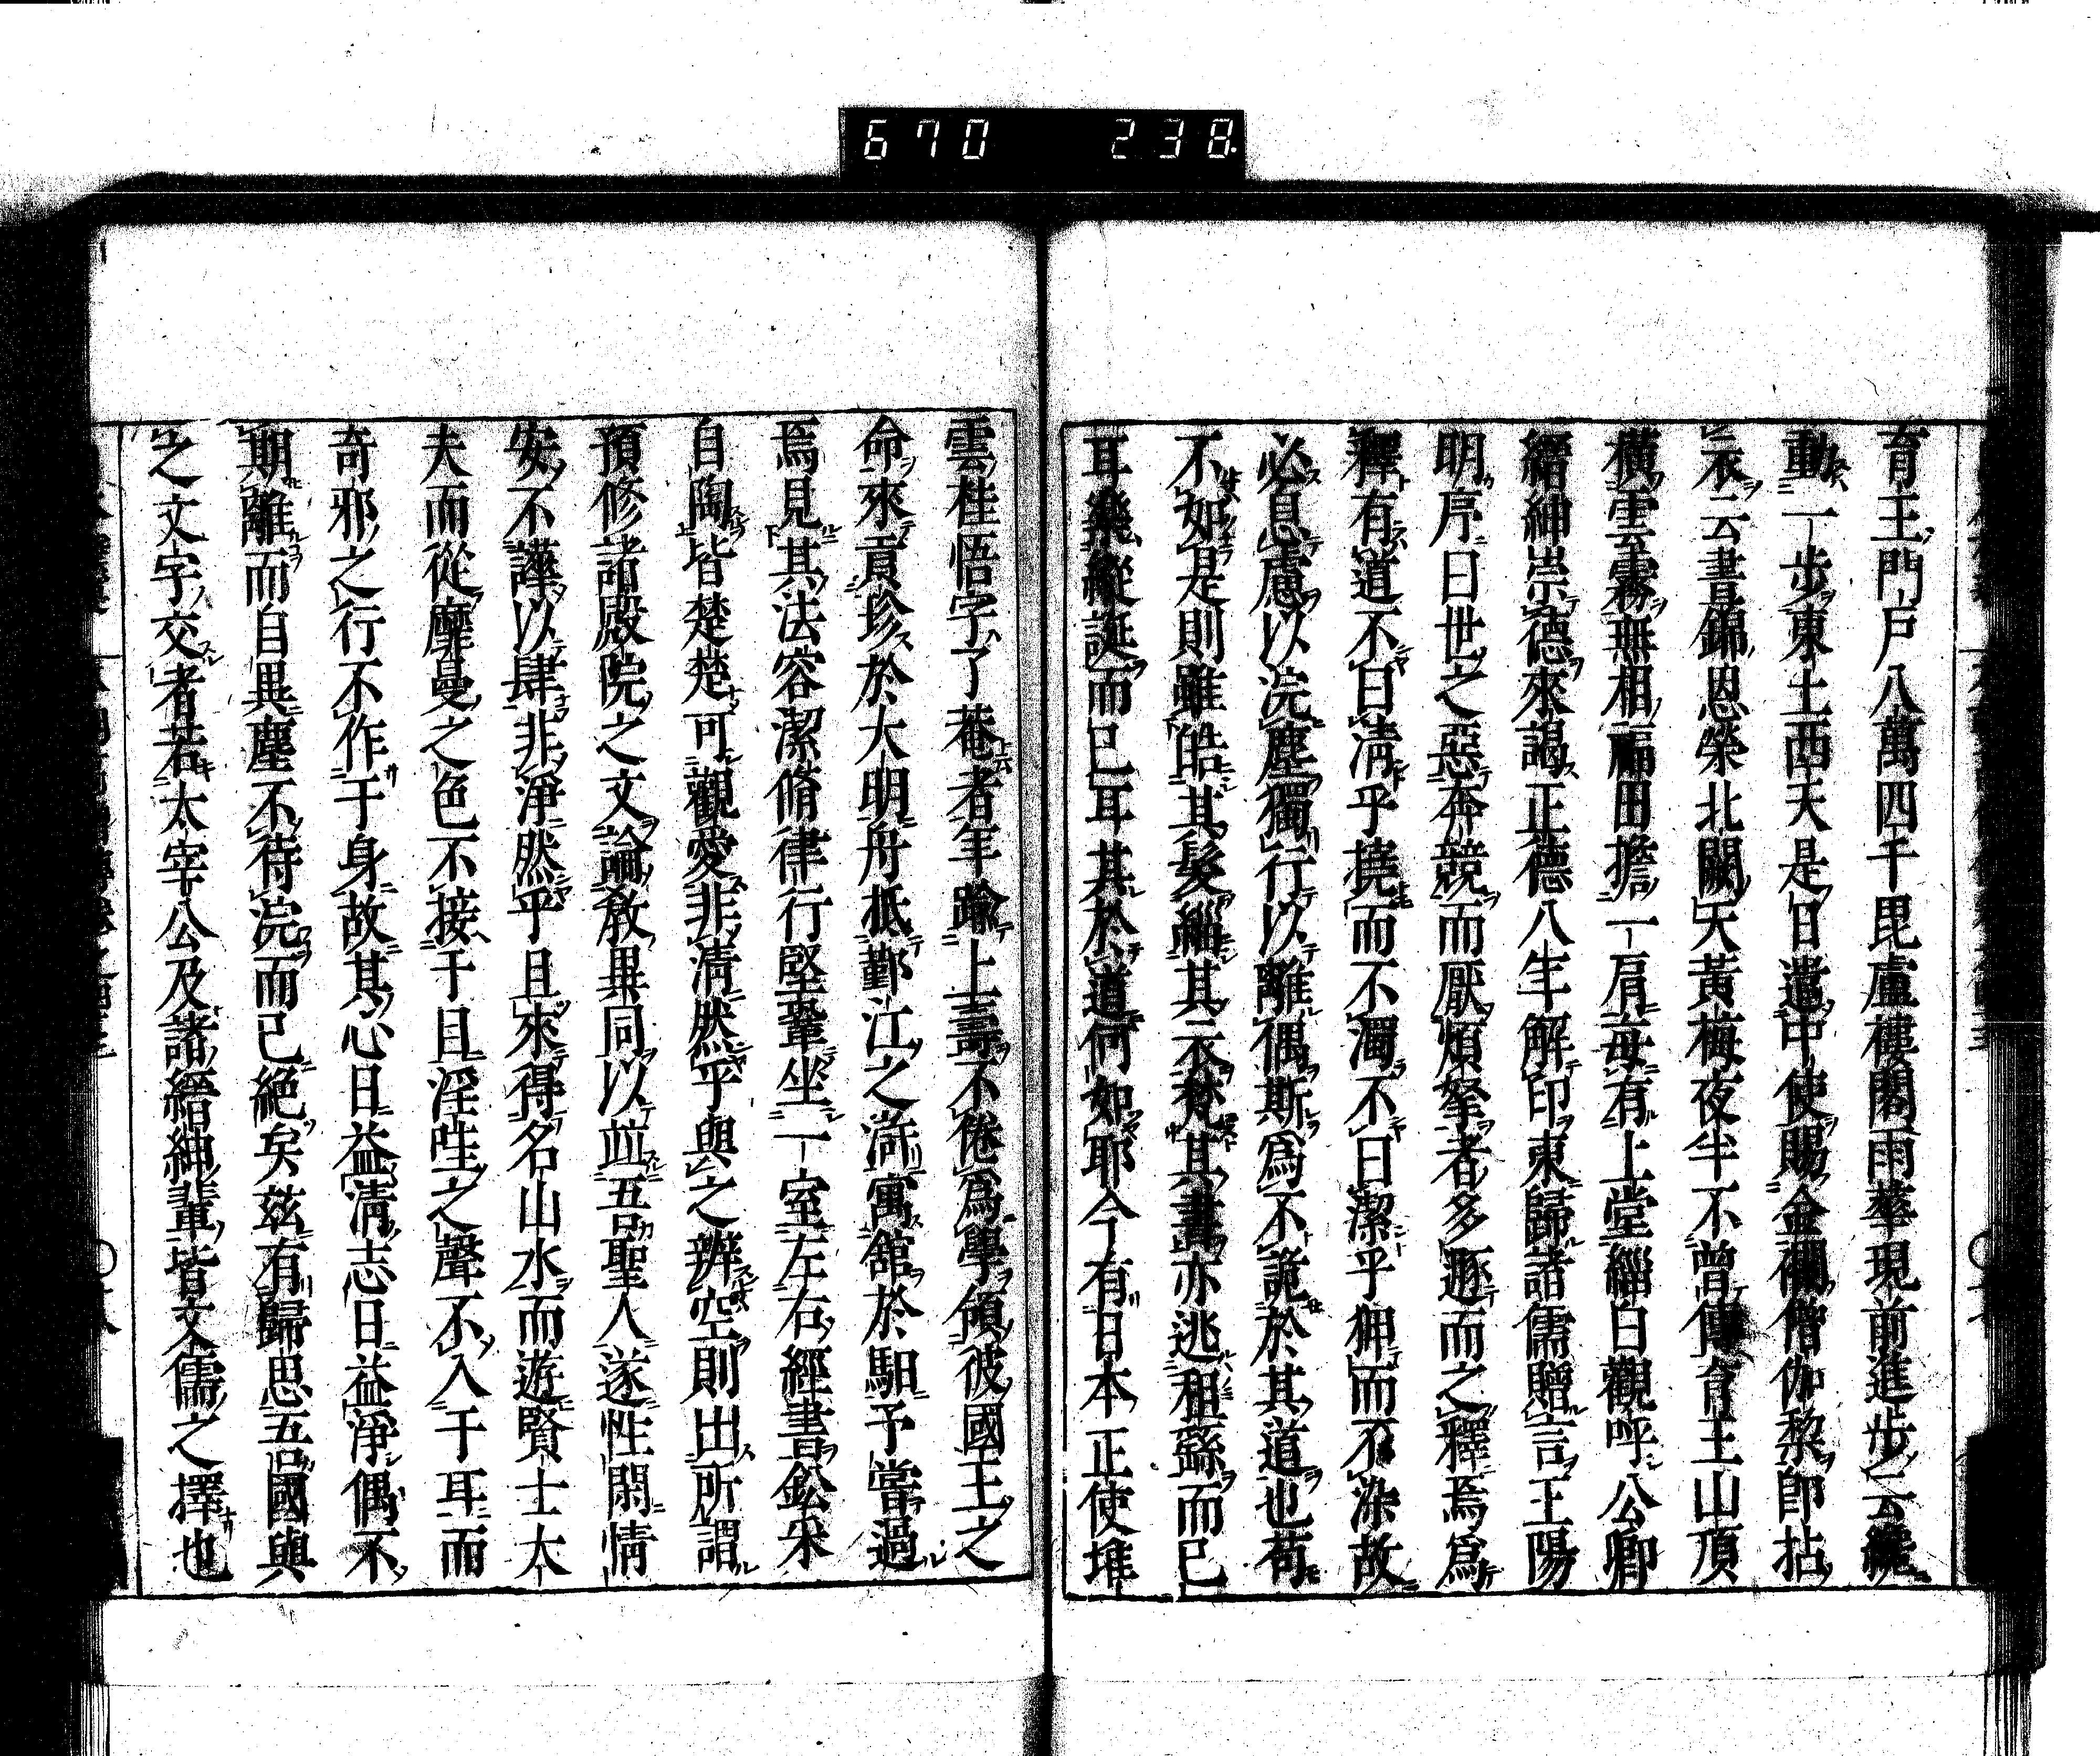 670 238
育王門戶八萬四千毘盧樓閣雨華現前進步云纔
動一步東土西天是日遣中使賜金襴僧伽黎卽拈
衣云晝錦恩榮北闕天黃梅夜半不曾傳育王山頂
橫雲霧無相福田擔一肩每有上堂緇白觀呼公卿
縉紳崇德來謁正德八年解印東歸諸儒贈言王陽
明序曰世之惡奔競而厭煩拏者多遯而之釋焉爲
釋有道不曰淸乎撓而不濁不曰潔乎狎而不染故
必息慮以浣塵獨行以離偶斯爲不詭於其道也苟
不如是則雖皓其髮緇其衣梵其書亦逃租繇而已
耳樂縱誕而已耳其於道何如耶今有日本正使堆
雲桂悟字了菴者年踰上壽不倦爲學領彼國王之
命來貢珍於大明舟抵鄞江之滸寓舘於馹予嘗過
焉見其法容潔脩律行堅鞏坐一室左右經書鉛采
自陶皆楚楚可觀愛非淸然乎與之辨空則出所謂
預修諸殿院之文論敎異同以竝吾聖人遂性閑情
安不譁以肆非淨然乎且來得名山水而遊賢士大
夫而從靡曼之色不接于目淫哇之聲不入于耳而
奇邪之行不作于身故其心日益淸志日益淨偶不
期離而自異塵不待浣而已絕矣茲有歸思吾國與
之文字交者若太宰公及諸縉紳輩皆文儒之擇也